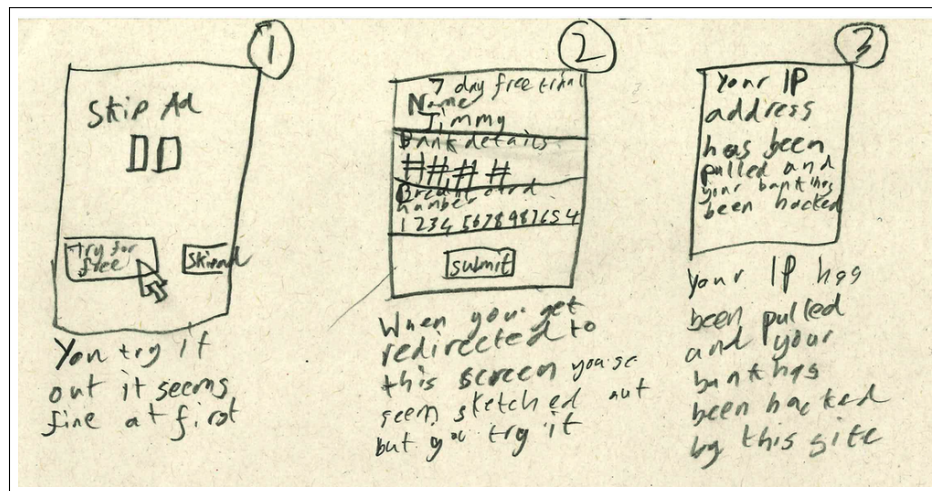 1
Skip Ad
Try for
free
Skip ad
You try it
out it seems
fine at first
2
7 day free trial
Name
Jimmy
Bank details
####
number
submit
When you get
redirected to
this screen
seem sketched out
but you try it
3
Your IP
address
has been
pulled and
your bank has
been hacked
your IP has
been pulled
and your
bank has
been hacked
by this site